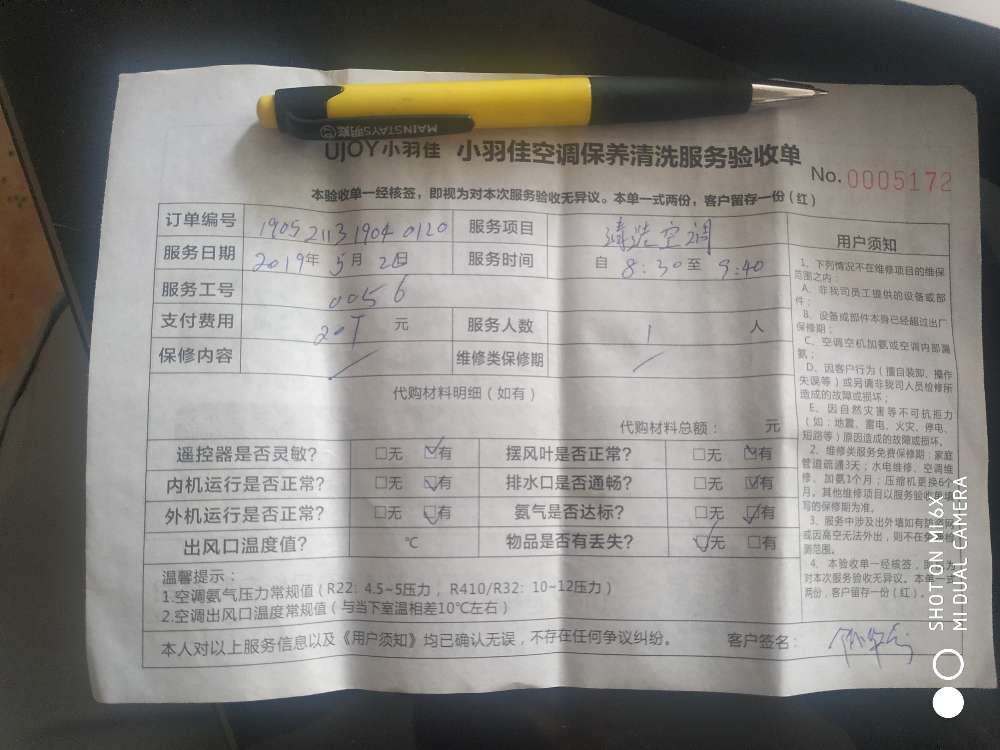 MAINSTAYS明辉
UJOY小羽佳 小羽佳空调保养清洗服务验收单
No. 0005172
本验收单一经核签，即视为对本次服务验收无异议。本单一式两份，客户留存一份（红）
订单编号 1905 2113 1904 0120 服务项目 清洗空调
服务日期 2019年 5月 2日 服务时间 自 8:30至 9:40
服务工号 0056
支付费用 元 服务人数 1 人
保修内容 / 维修类保修期 /
代购材料明细（如有）
代购材料总额： 元
遥控器是否灵敏? □无 ☑有 摆风叶是否正常? □无 ☑有
内机运行是否正常? □无 ☑有 排水口是否通畅? □无 ☑有
外机运行是否正常? □无 ☑有 氨气是否达标? □无 ☑有
出风口温度值? ℃ 物品是否有丢失? ☑无 □有
温馨提示：
1.空调氨气压力常规值（R22: 4.5~5压力， R410/R32: 10~12压力）
2.空调出风口温度常规值（与当下室温相差10℃左右）
本人对以上服务信息以及《用户须知》均已确认无误，不存在任何争议纠纷。 客户签名：
用户须知
1、下列情况不在维修项目的维保
范围之内：
A、非我司员工提供的设备或部
件；
B、设备或部件本身已经超过出厂
保修期；
C、空调空机加氨或空调内部漏
氨；
D、因客户行为（擅自装卸、操作
失误等）或另请非我司人员检修所
造成的故障或损坏；
E、因自然灾害等不可抗拒力
（如：地震、雷电、火灾、停电、
短路等）原因造成的故障或损坏。
2、维修类服务免费保修期：家庭
管道疏通3天；水电维修、空调维
修、加氨1个月；压缩机更换6个
月。其他维修项目以服务验收单填
写的保修期为准。
3、服务中涉及出外墙如有防盗网
或因高空无法外出，则不在免费检
测范围。
4、本验收单一经核签，即视为
对本次服务验收无异议。本单一式
两份，客户留存一份（红）。
SHOT ON MI 6X
MI DUAL CAMERA